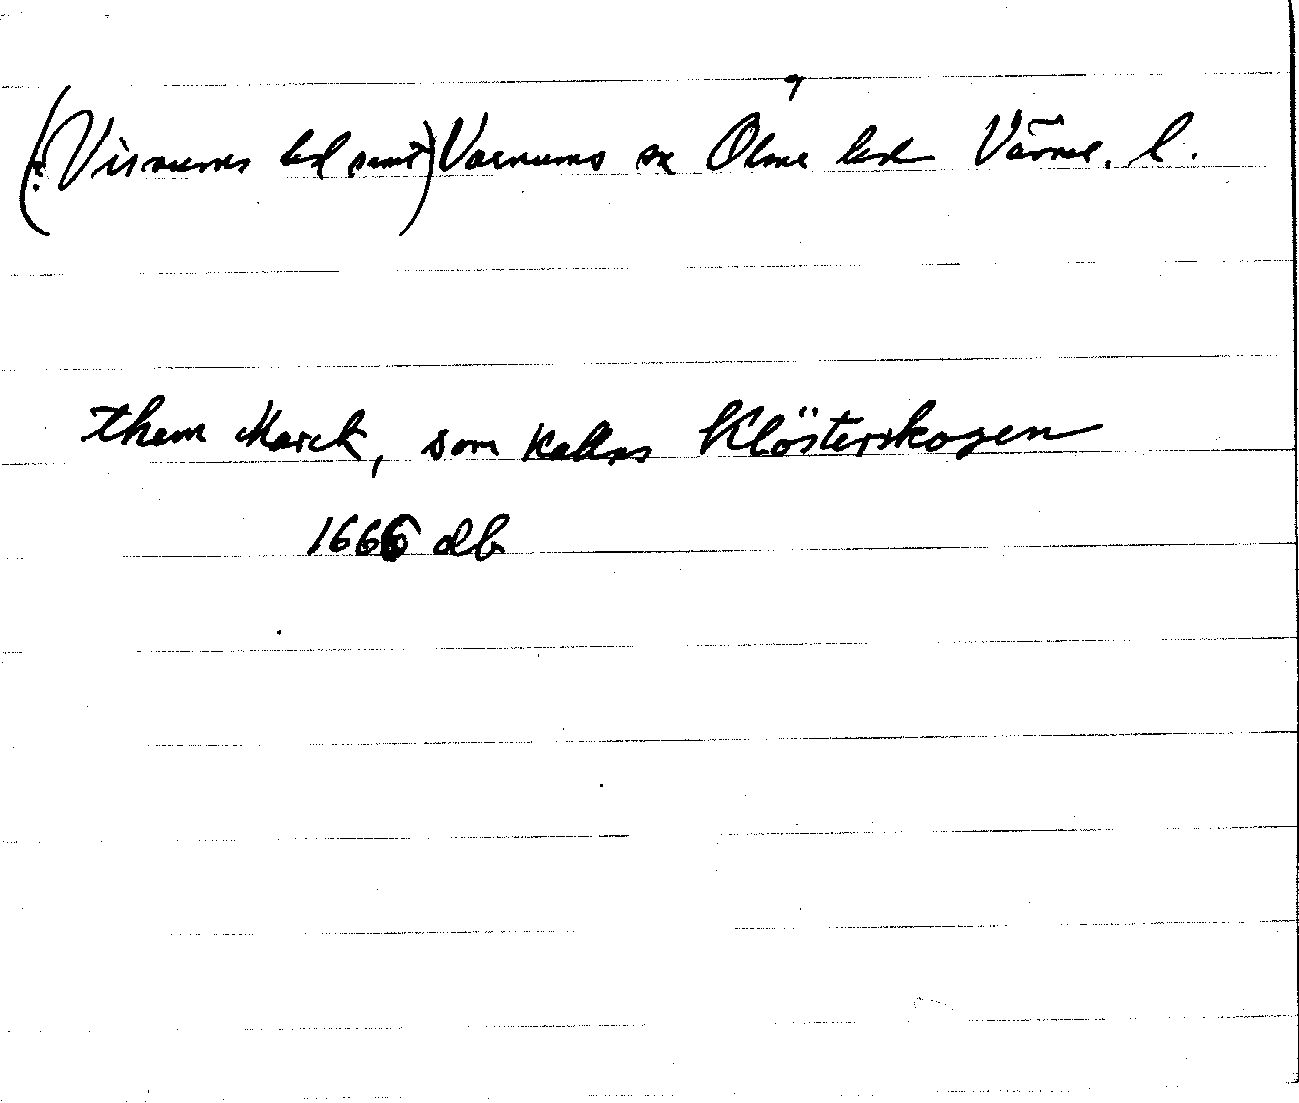 (: Visnums hd samt) Varnums sn Ölme hd Värml. l.
them Marck, som kallas Klösterskogen
1666 db